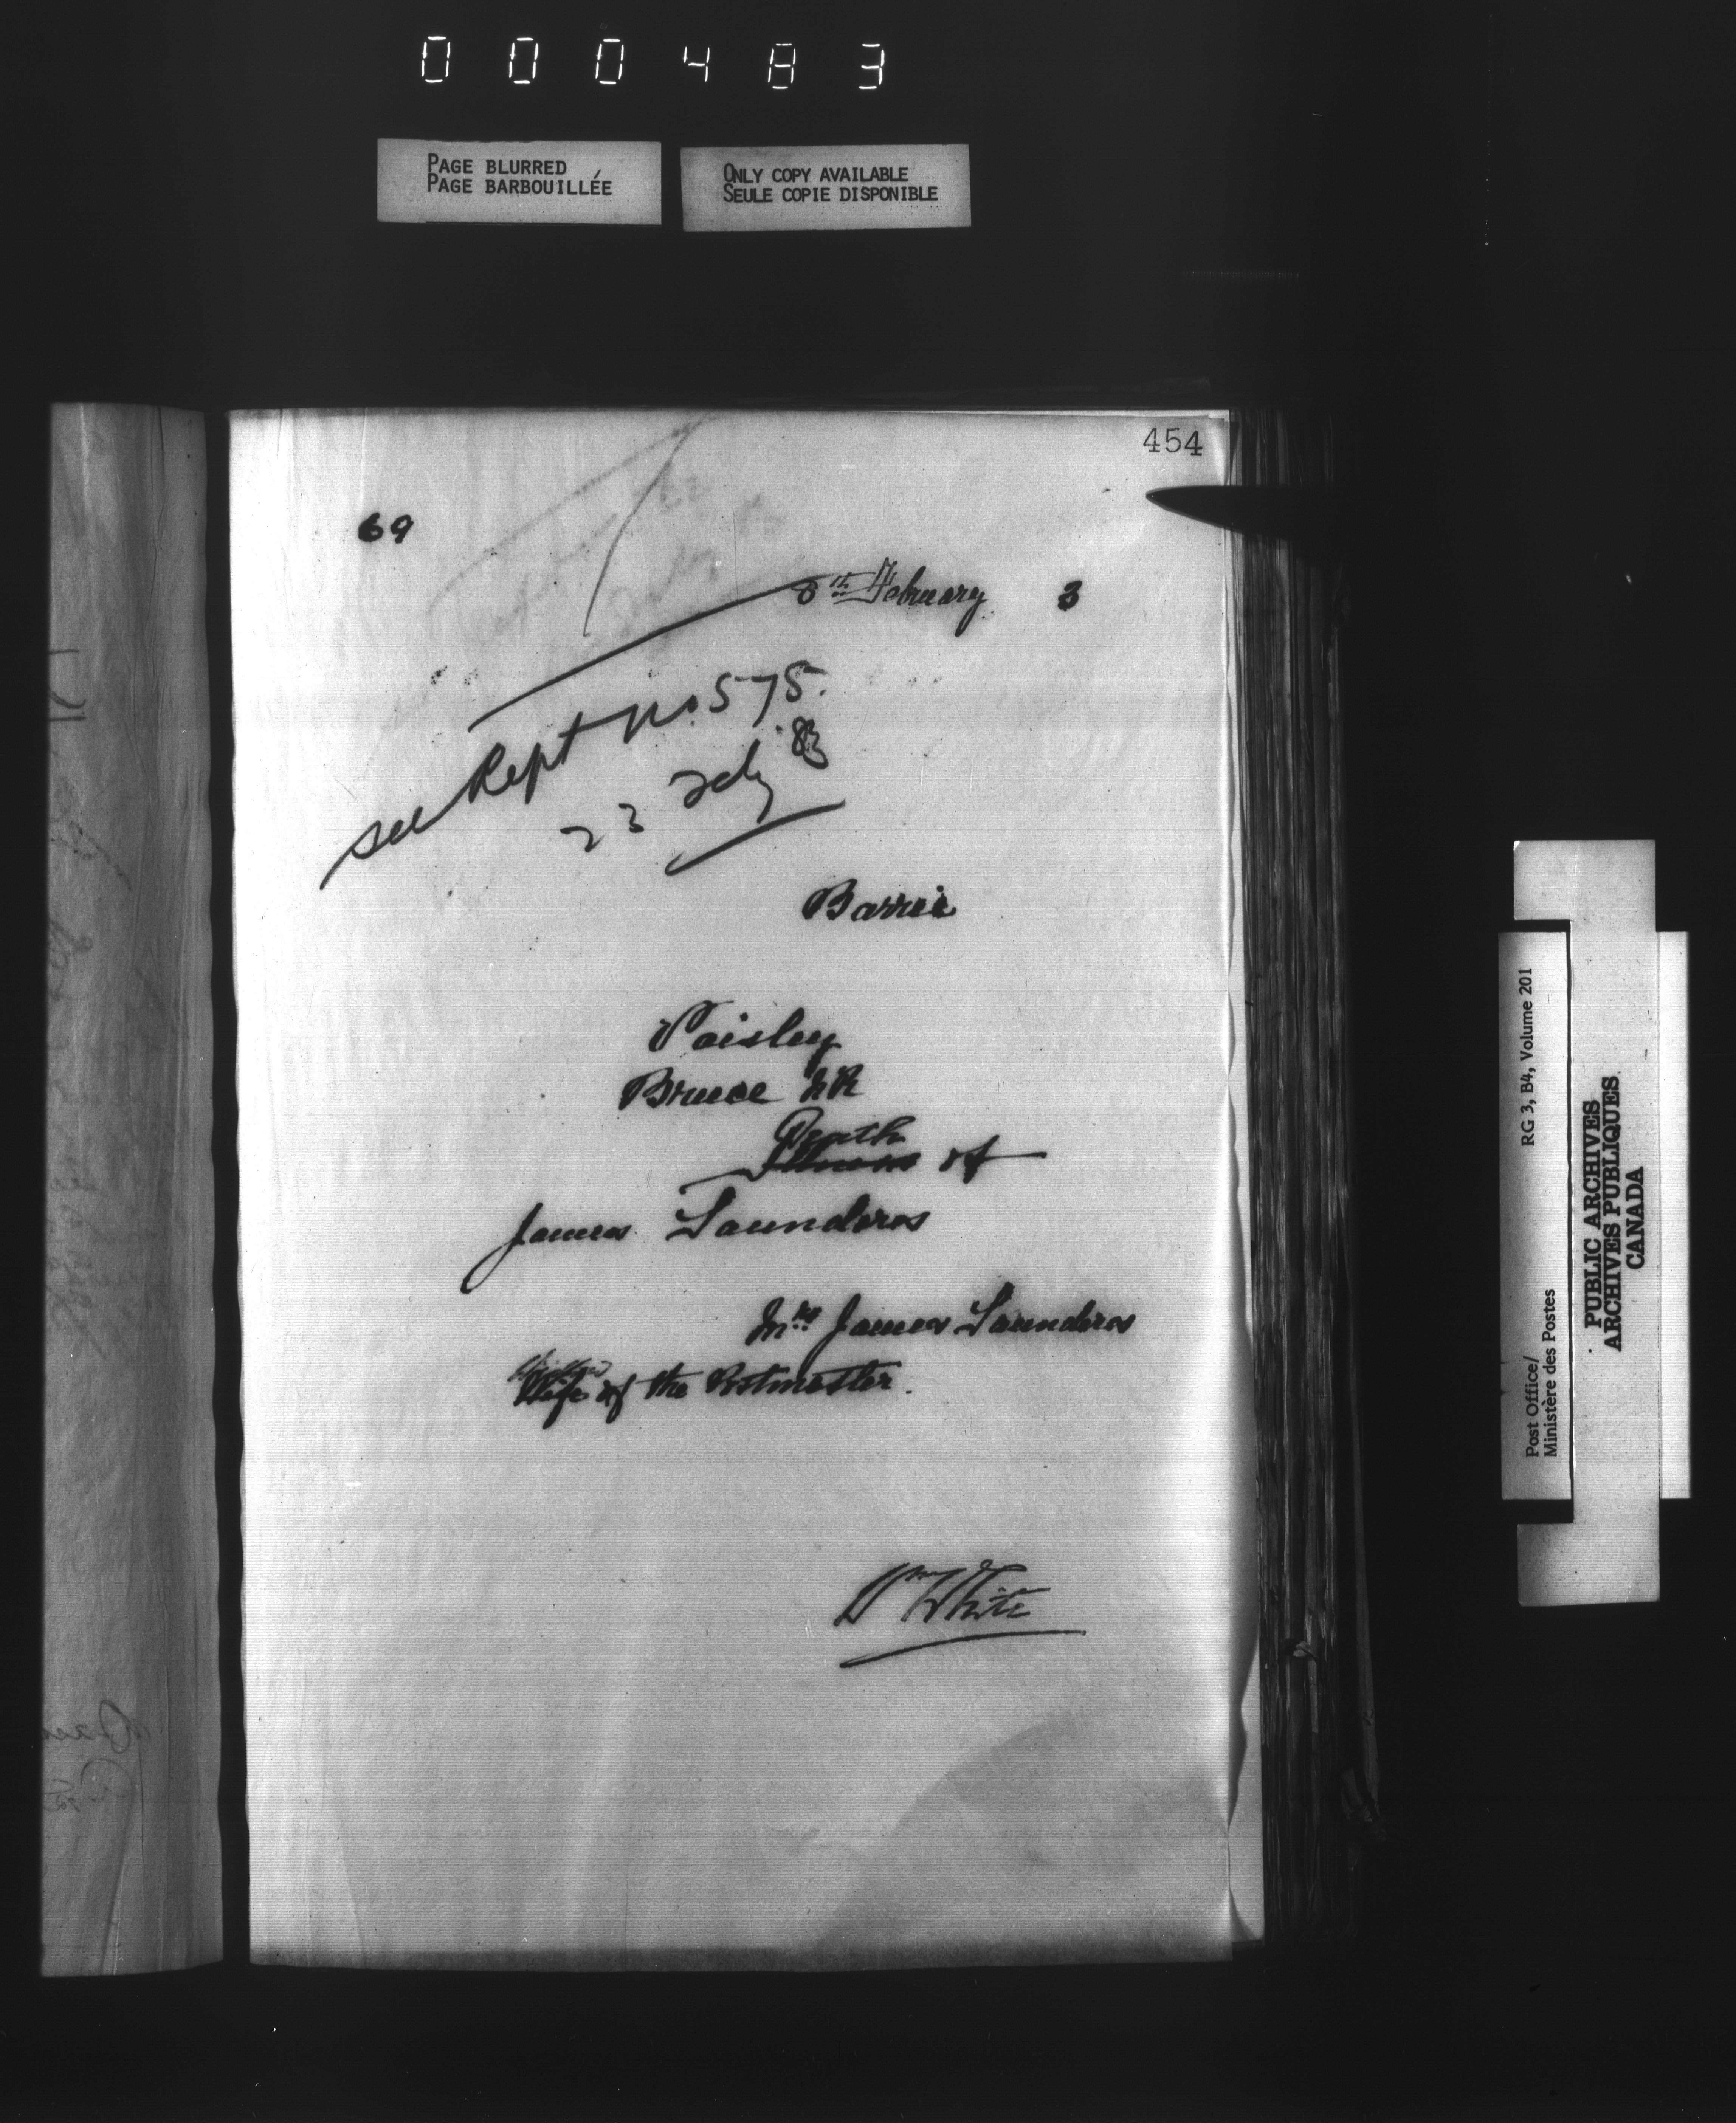 000483
PAGE BLURRED
PAGE BARBOUILLÉE
ONLY COPY AVAILABLE
SEULE COPIE DISPONIBLE
454
69
8th February 3
see Rept no. 575.
23 Feby 83
Barrie
Paisley
Bruce NR
Death
Illness of
James Saunders
Mrs James Saunders
Wife of the Postmaster.
Wm White
Post Office/ RG 3, B4, Volume 201
Ministère des Postes
PUBLIC ARCHIVES
ARCHIVES PUBLIQUES
CANADA